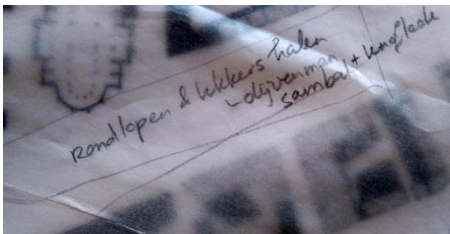 Rondlopen & lekkers halen
- duivenman
sambal + knoflook